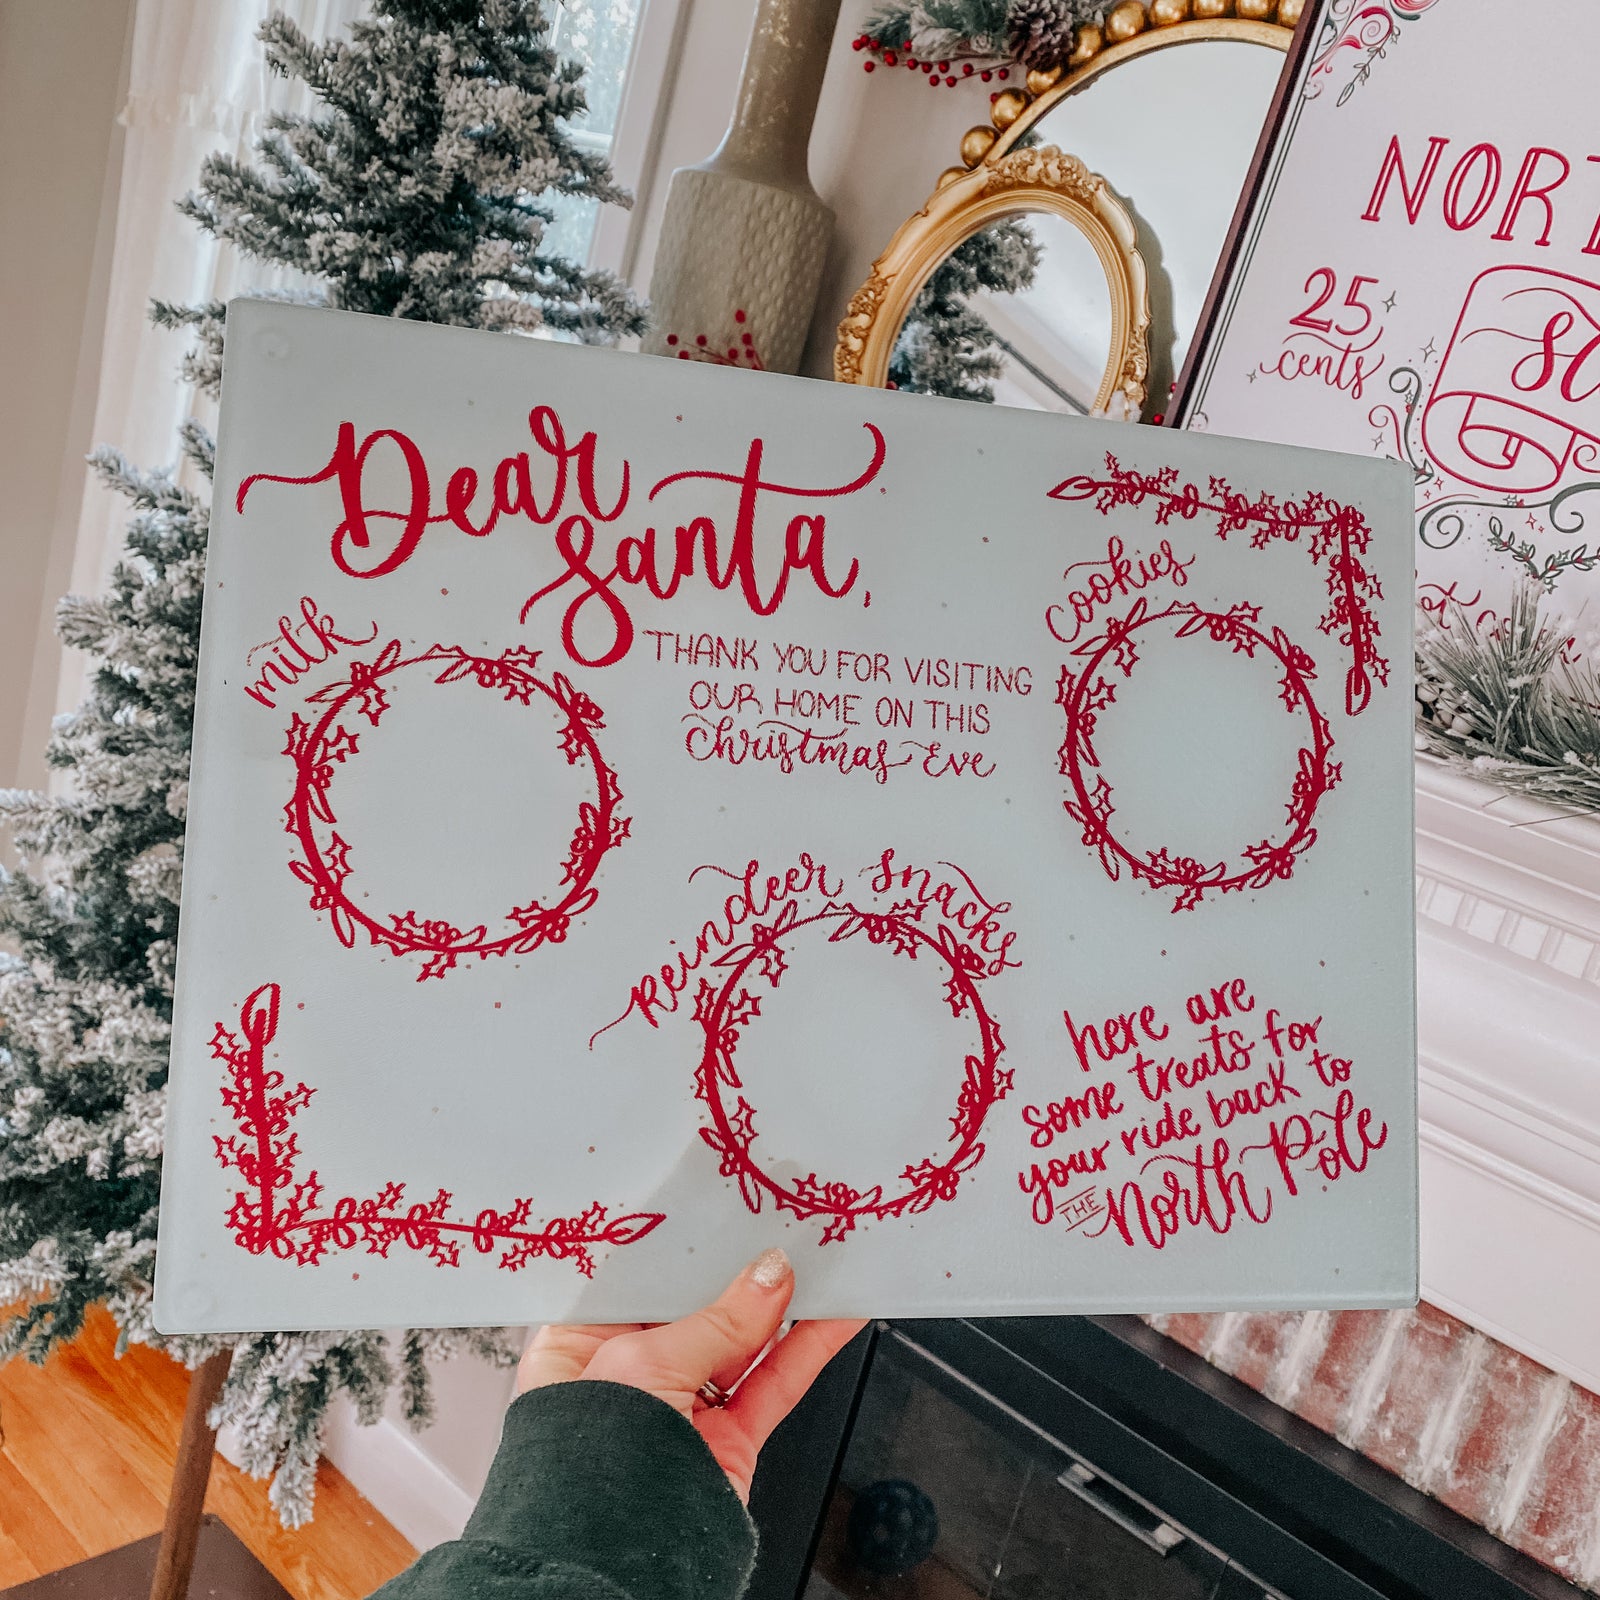 Dear
Santa,
milk
THANK YOU FOR VISITING
OUR HOME ON THIS
Christmas Eve
cookies
Reindeer Snacks
here are
some treats for
your ride back to
THE North Pole
25
cents